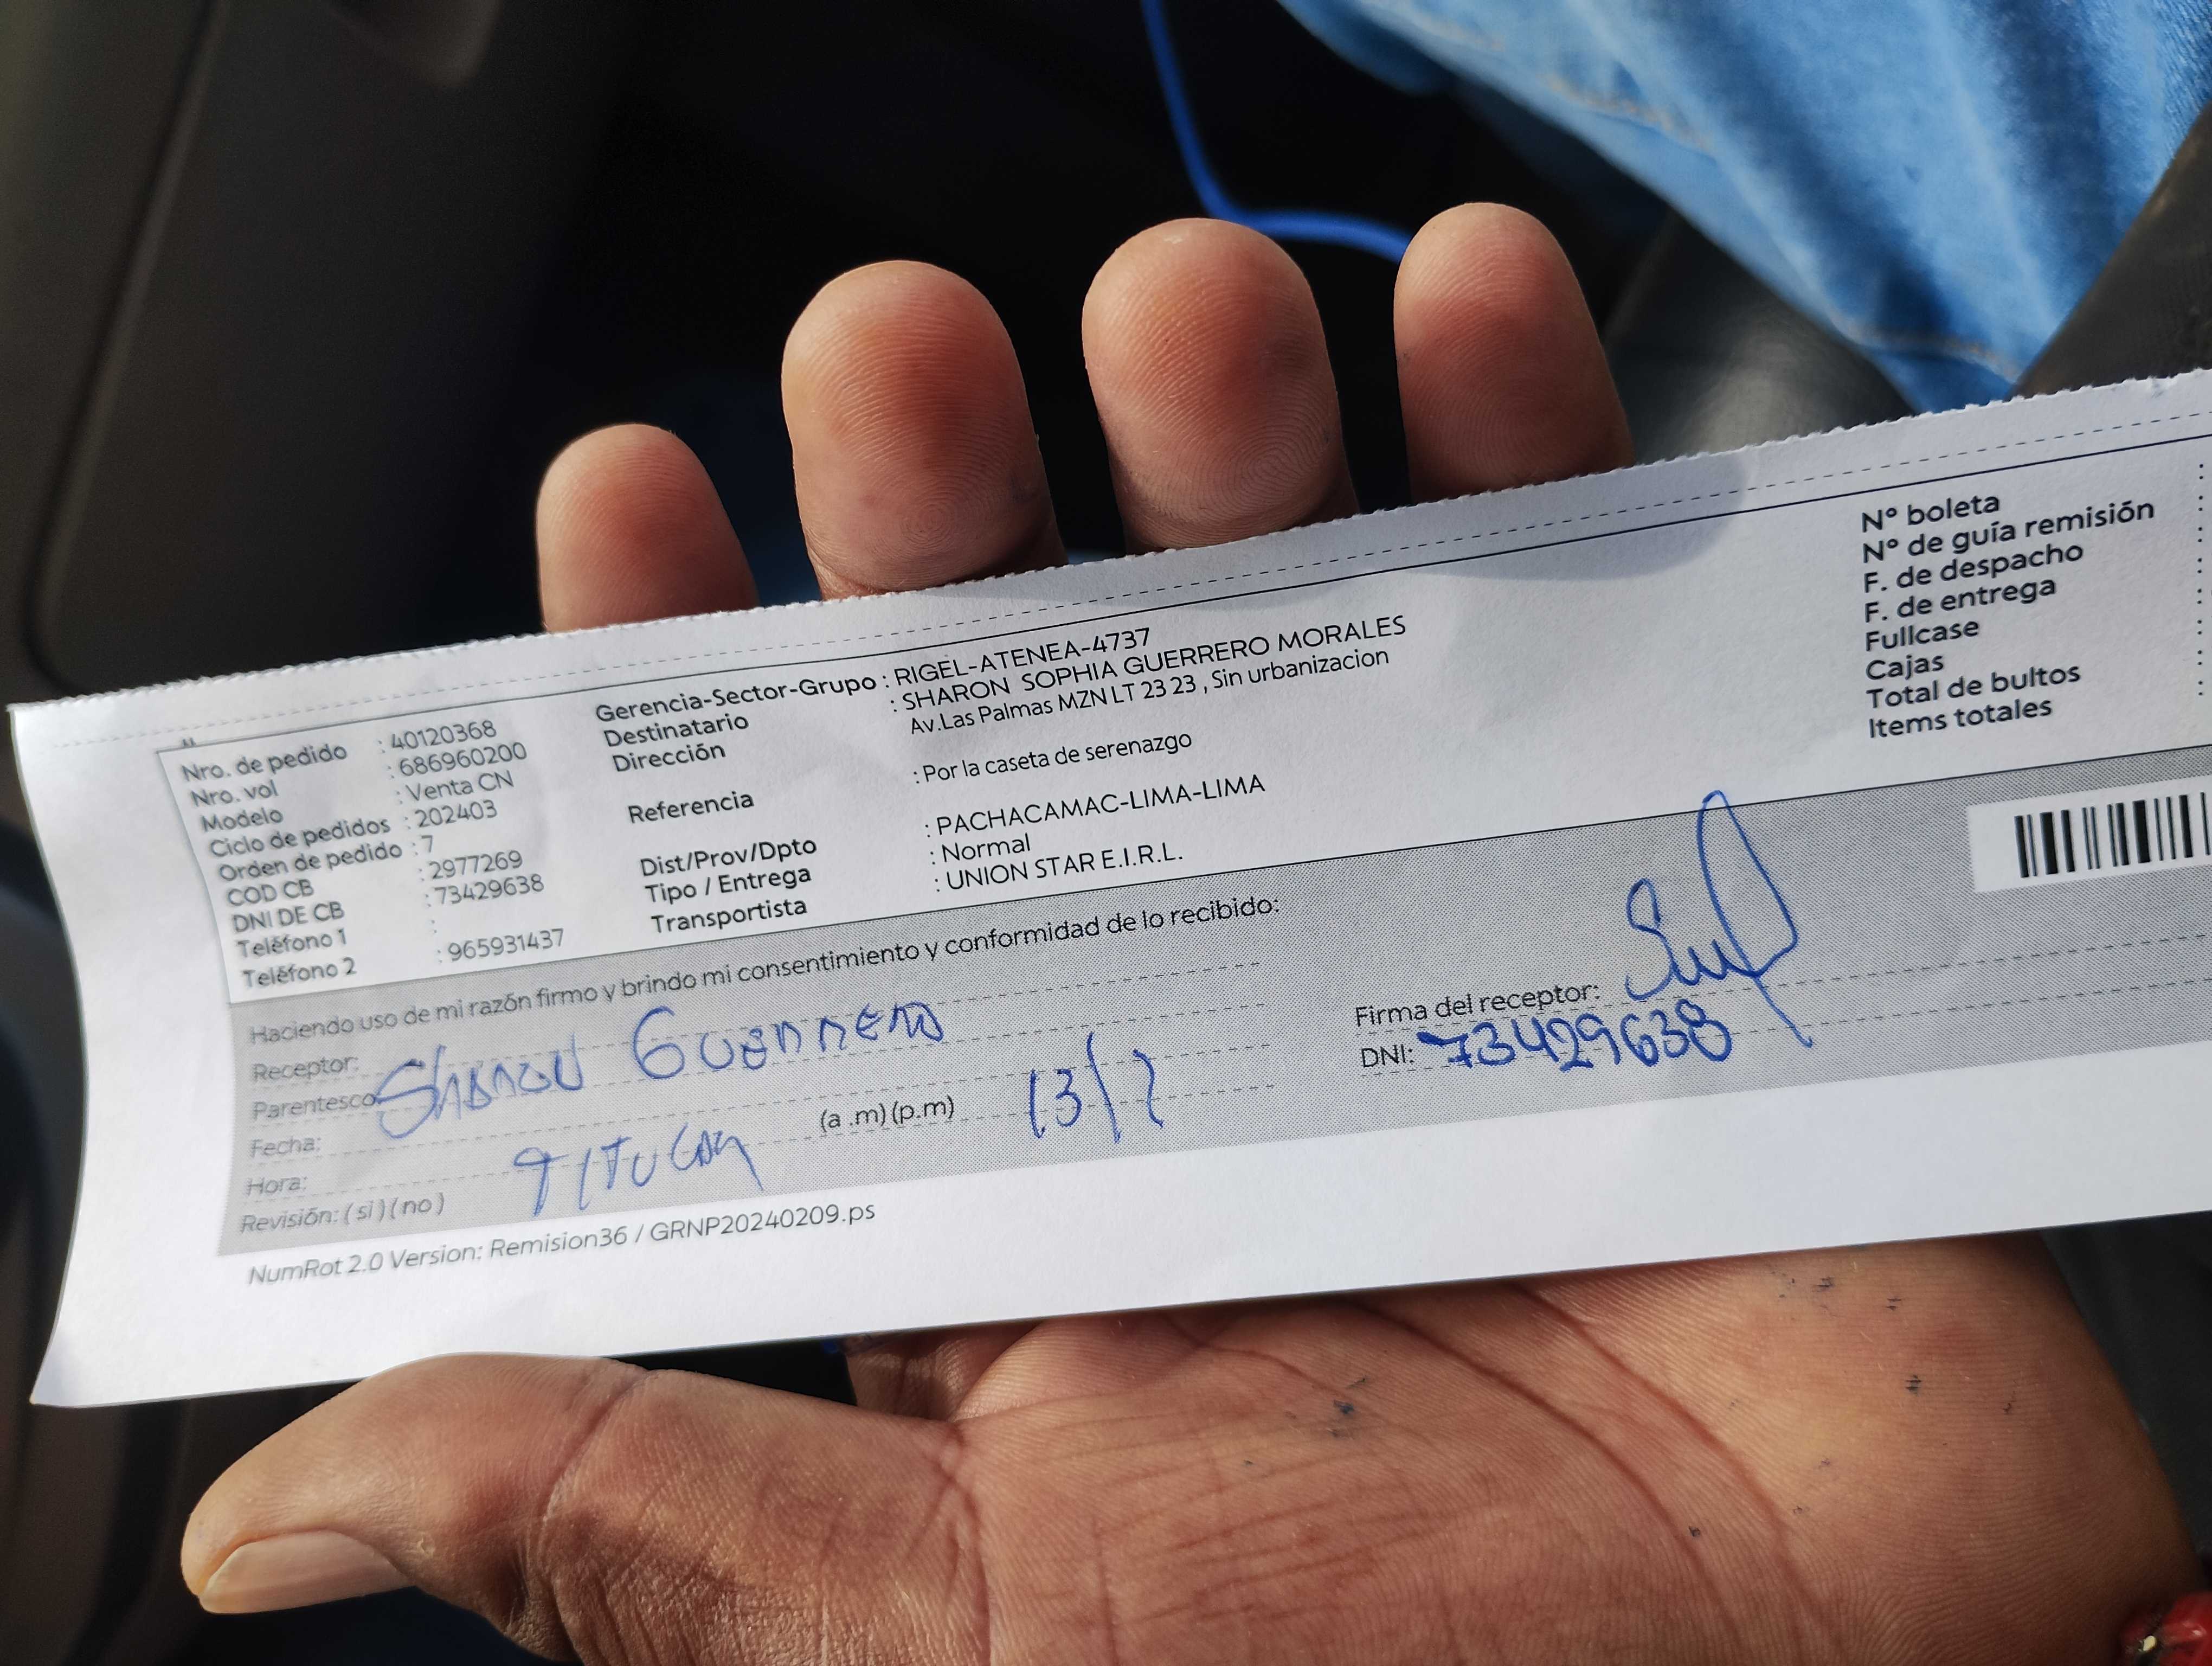 Nro. de pedido : 40120368
Nro. vol : 686960200
Modelo : Venta CN
Ciclo de pedidos : 202403
Orden de pedido : 7
COD CB : 2977269
DNI DE CB : 73429638
Teléfono 1 :
Teléfono 2 : 965931437
Gerencia-Sector-Grupo : RIGEL-ATENEA-4737
Destinatario : SHARON SOPHIA GUERRERO MORALES
Dirección Av.Las Palmas MZN LT 23 23 , Sin urbanizacion
Referencia : Por la caseta de serenazgo
Dist/Prov/Dpto : PACHACAMAC-LIMA-LIMA
Tipo / Entrega : Normal
Transportista : UNION STAR E.I.R.L.
N° boleta :
N° de guía remisión :
F. de despacho :
F. de entrega :
Fullcase :
Cajas :
Total de bultos :
Items totales :
Haciendo uso de mi razón firmo y brindo mi consentimiento y conformidad de lo recibido:
Receptor: Sharon Guerrero
Parentesco:
Fecha: Titular 13/2
Hora: (a .m) (p.m)
Revisión: ( si ) ( no )
Firma del receptor:
DNI: 73429638
NumRot 2.0 Version: Remision36 / GRNP20240209.ps